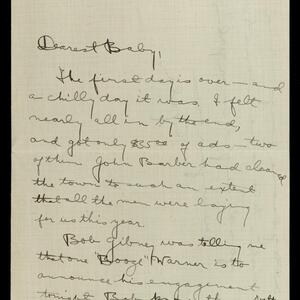 Dearest Baby,
The first day is over — and
a chilly day it was. I felt
nearly all in by the end,
and got only $35.00 of ads — two
of them. John Barber had cleaned
the town to such an extent
that all the men were laying
for us this year.
Bob Gibney was telling me
that one "Boogi" Warner is to
announce his engagement
tonight